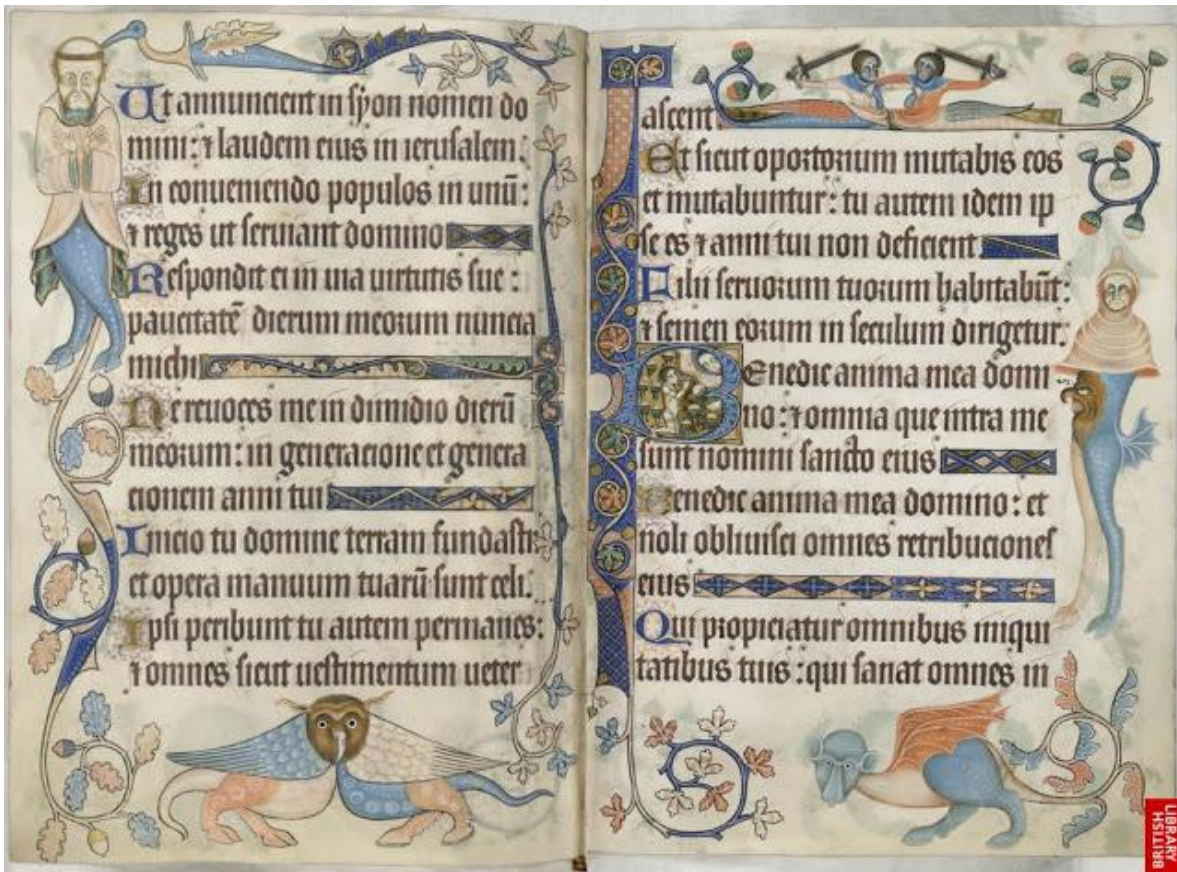 Ut annuncient in syon nomen do
mini: ⁊ laudem eius in ierusalem.
In conueniendo populos in unū:
⁊ reges ut seruiant domino
Respondit ei in uia uirtutis sue:
paucitatē dierum meorum nuncia
michi
Ne reuoces me in dimidio dierū
meorum: in generacione et genera
cionem anni tui
Inicio tu domine terram fundasti
et opera manuum tuarū sunt celi.
Ipsi peribunt tu autem permanes:
⁊ omnes sicut uestimentum ueter
ascent
Et sicut oportorium mutabis eos
et mutabuntur: tu autem idem ip
se es ⁊ anni tui non deficient
Filii seruorum tuorum habitabūt:
⁊ semen eorum in seculum dirigetur.
Benedic anima mea domi
no: ⁊ omnia que intra me
sunt nomini sancto eius
Benedic anima mea domino: et
noli obliuisci omnes retribuciones
eius
Qui propiciatur omnibus iniqui
tatibus tuis: qui sanat omnes in
BRITISH
LIBRARY